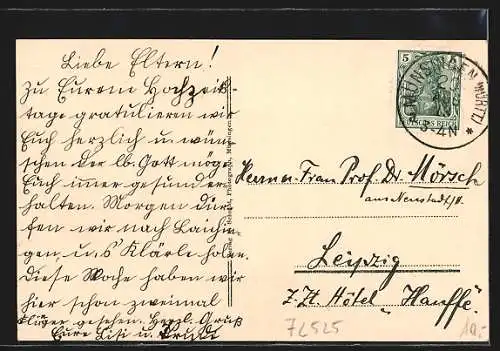 Liebe Eltern!
Zu Eurem Hochzeits-
tage gratulieren wir
Euch herzlich u. wün-
schen der lb. Gott möge
Euch immer gesund er-
halten. Morgen dür-
fen wir nach Laichin-
gen u. 's Klärle holen.
Diese Woche haben wir
hier schon zweimal
gesehen. Herzl. Gruß
Eure Lisi u.
5
DEUTSCHES REICH
MÜNSINGEN (WÜRTT.)
3-4N
Herrn u. Frau Prof. Dr. Mörsch
aus Neustadt
Leipzig
z. Zt. Hôtel "Hauffe"
72525
10.-